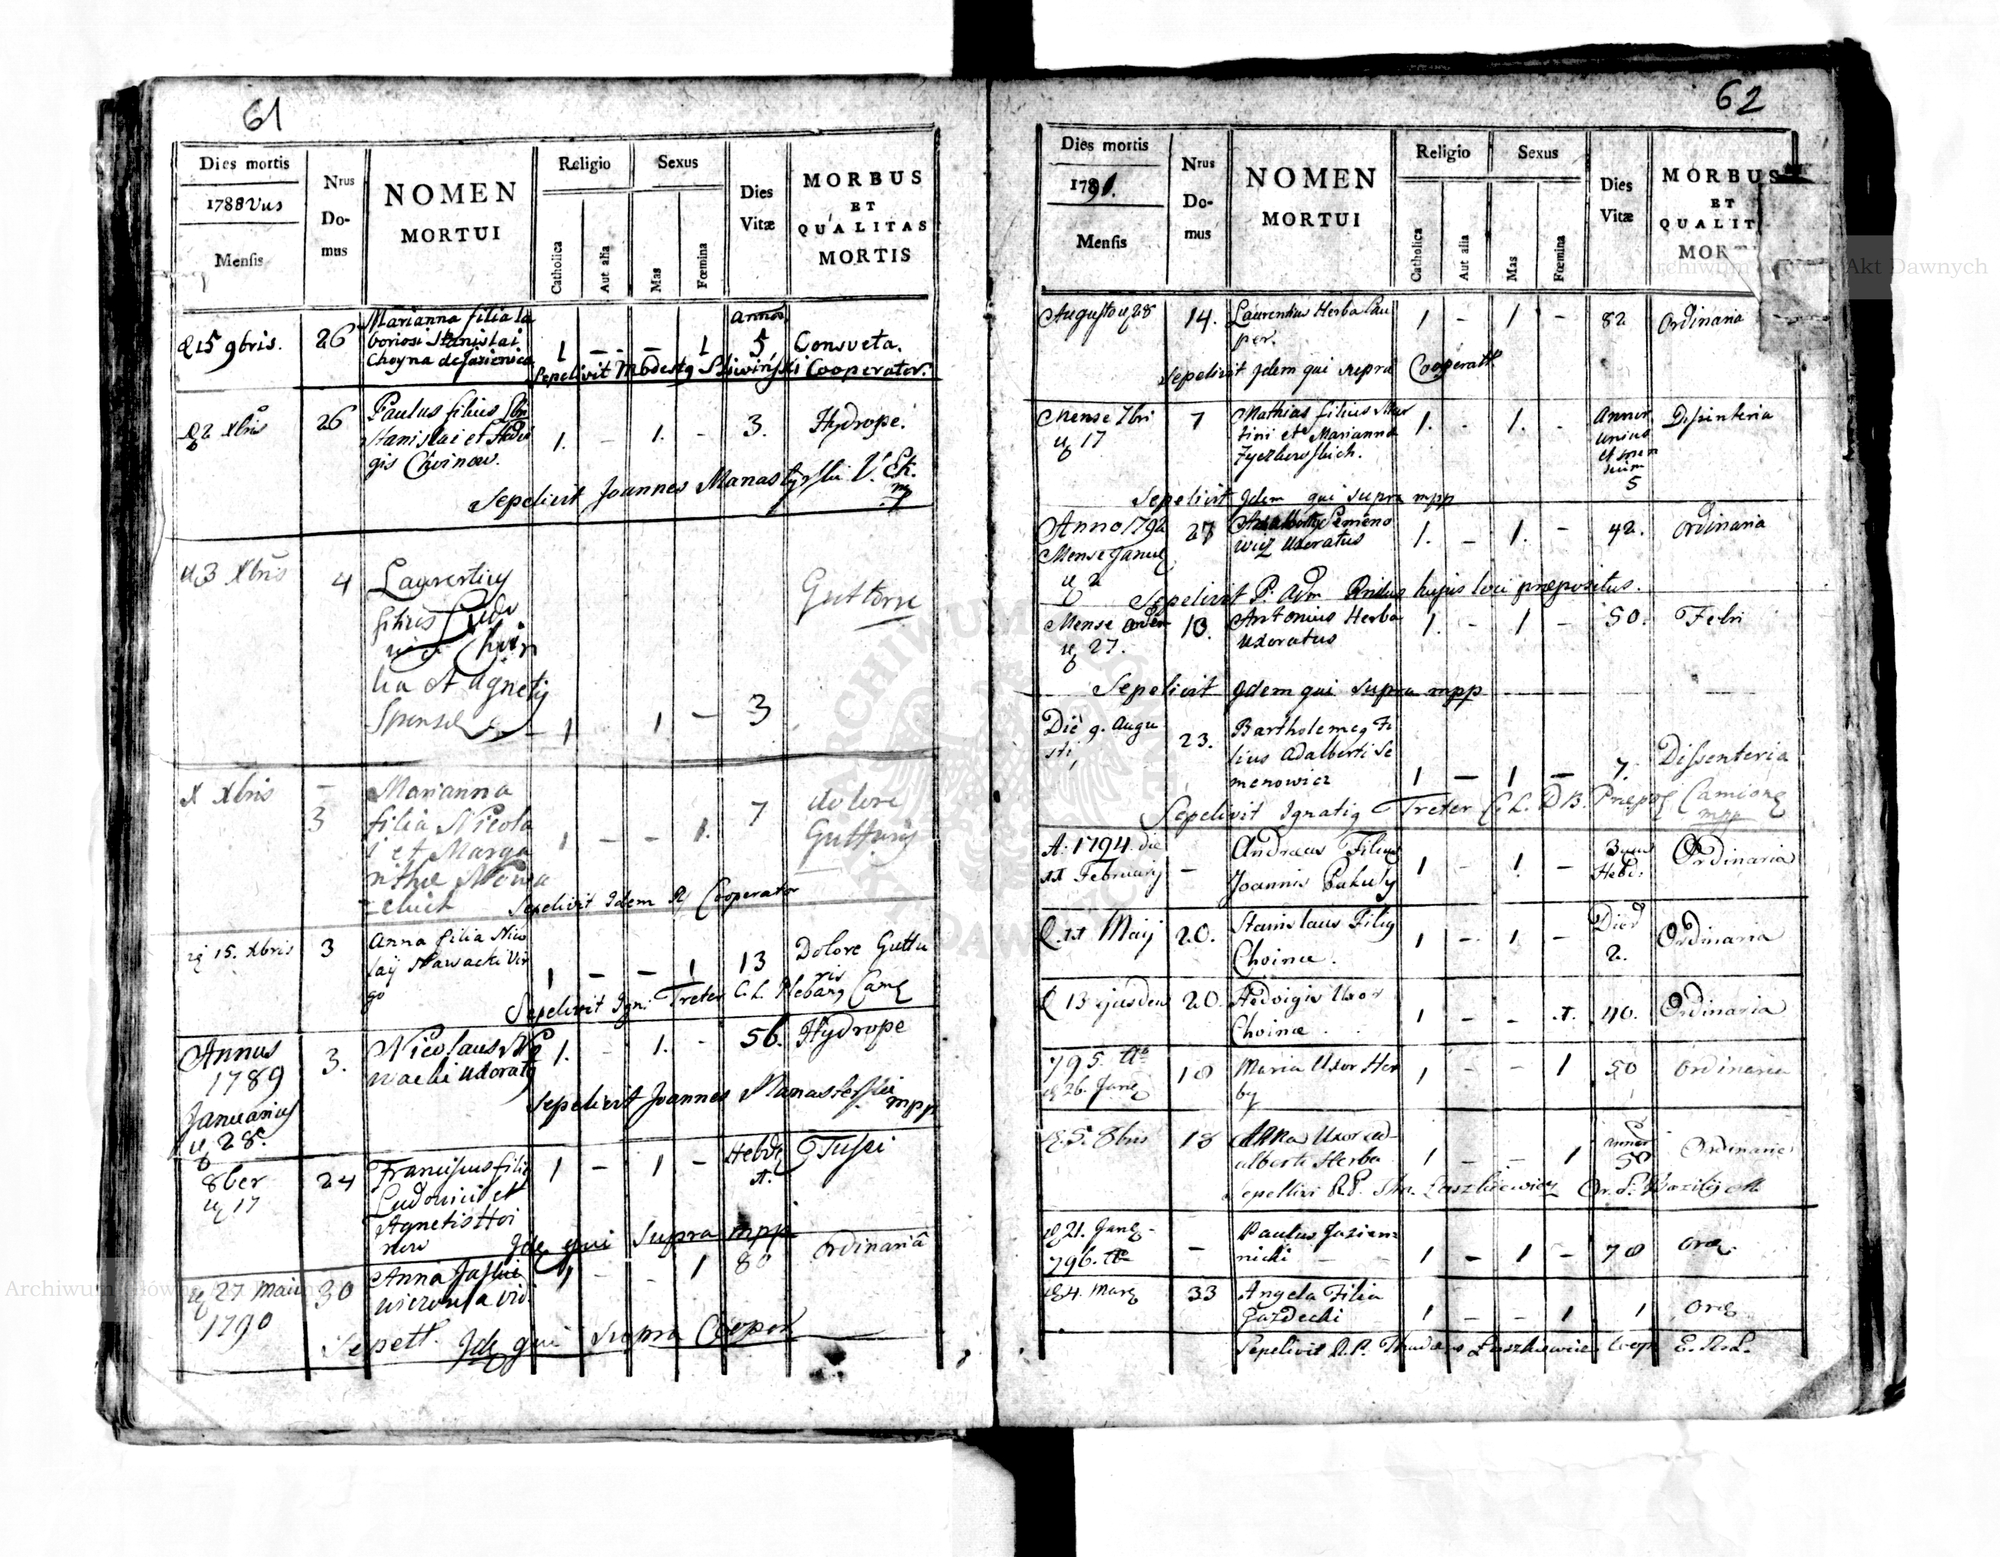 61
Dies mortis
1788vus
Mensis
Nrus
Do-
mus
NOMEN
MORTUI
Religio
Catholica
Aut alia
Sexus
Mas
Fœmina
Dies
Vitæ
MORBUS
ET
QUALITAS
MORTIS
15 9bris.
26
Marianna filia la
boriosi Stanislai
Choyna de Jasienica
1 - - 1
annos
5
Consveta.
Sepelivit Modestq Sliwiński Cooperator.
2 Xbris
26
Paulus filius
Stanislai et Hedvi
gis Choinow.
1. - 1. -
3.
Hydrope.
Sepelivit Joannes Manastyrski V.
3 Xbris
4
Laurentiq
filius Ludo
vici Choin
ka et Agnetis
1 1 -
3
Gutture
X Xbris
3
Marianna
filia Nicola
i et Marga
rithæ Nowa
1 - - 1.
7
dolore
Gutturis
Sepelivit Idem Cooperator
15. Xbris
3
Anna filia Nico
lay Nawacki Vir
go
1 - - 1
13
Dolore Guttu
ris
Sepelivit Ign: Treter C. L. Plebanq Camq
Annus
1789
Januarius
28.
3.
Nicolaus No
wacki uxoratq
1. - 1. -
56.
Hydrope
Sepelivit Joannes Manasterski mpp
8ber
17
24
Franciscus filiq
Ludovici et
Agnetis Hoi
1 - 1 -
Hebd.
Tussi
Idq qui supra mpp
27 Maii
1790
30
Anna
1 - - 1
80
ordinariâ
Sepell. Idq qui supra Cooper
62
Dies mortis
1791.
Mensis
Nrus
Do-
mus
NOMEN
MORTUI
Religio
Catholica
Aut alia
Sexus
Mas
Fœmina
Dies
Vitæ
MORBUS
ET
QUALIT
MOR
Augusto 28
14.
Laurentius Herba Pau
per.
1 - 1 -
82
Ordinaria
Sepelivit Idem qui supra Cooperatr
Mense 7bri
17
7
Mathias filius Mar
tini et Marianna
1. - 1. -
Annor
unius
et men
sium
5
Dissinteria
Sepelivit Idem qui supra mpp
Anno 1792
Mense Janu
2
27
Semeno
wicz uxoratus
1. - 1. -
42.
Ordinaria
Sepelivit P. Adm hujus loci præpositus.
Mense
27.
18.
Antonius Herba
uxoratus
1. - 1 -
50.
Febri
Sepelivit Idem qui supra mpp
Die 9. Augu
sti,
23.
Bartholomeq Fi
lius Adalberti Se
menowicz
1 - 1 -
7.
Dissenteria
Sepelivit Ignatiq Treter C. L. D B. Præpoq Camionq
mpp
A. 1794 die
Februarij
-
Andræas Filius
Joannis Pukuly
1 - 1 -
3
Hebd.
Ordinaria
Maij
20.
Stanislaus Filiq
Choinæ.
1 - 1 -
Dier
2.
Ordinaria
13 ejusdem
20.
Hedvigis Uxor
Choinæ.
1 - - 1.
40.
Ordinaria
795. Ao
26. Junq
18
Maria Uxor Her
by
1 - - 1
50
Ordinaria
5. 8bris
18
Anna Uxor Ad-
alberti Herba
1 - - 1
annor
50
Ordinaria
Sepellivi R.P. Tha. Laszkiewicz Or. S. Bazilij M
21. Janq
796. Ao
-
Paulus Jazien-
nicki
1 - 1 -
78
Orda.
4. Marq
33
Angela Filia
Gazdecki
1 - - 1
1
Ordq.
Sepelivit R.P. Thadæus Laszkiewicz Coop
Archiwum Główne Akt Dawnych
Archiwum Główne Akt Dawnych
ARCHIWUM GŁÓWNE AKT DAWNYCH